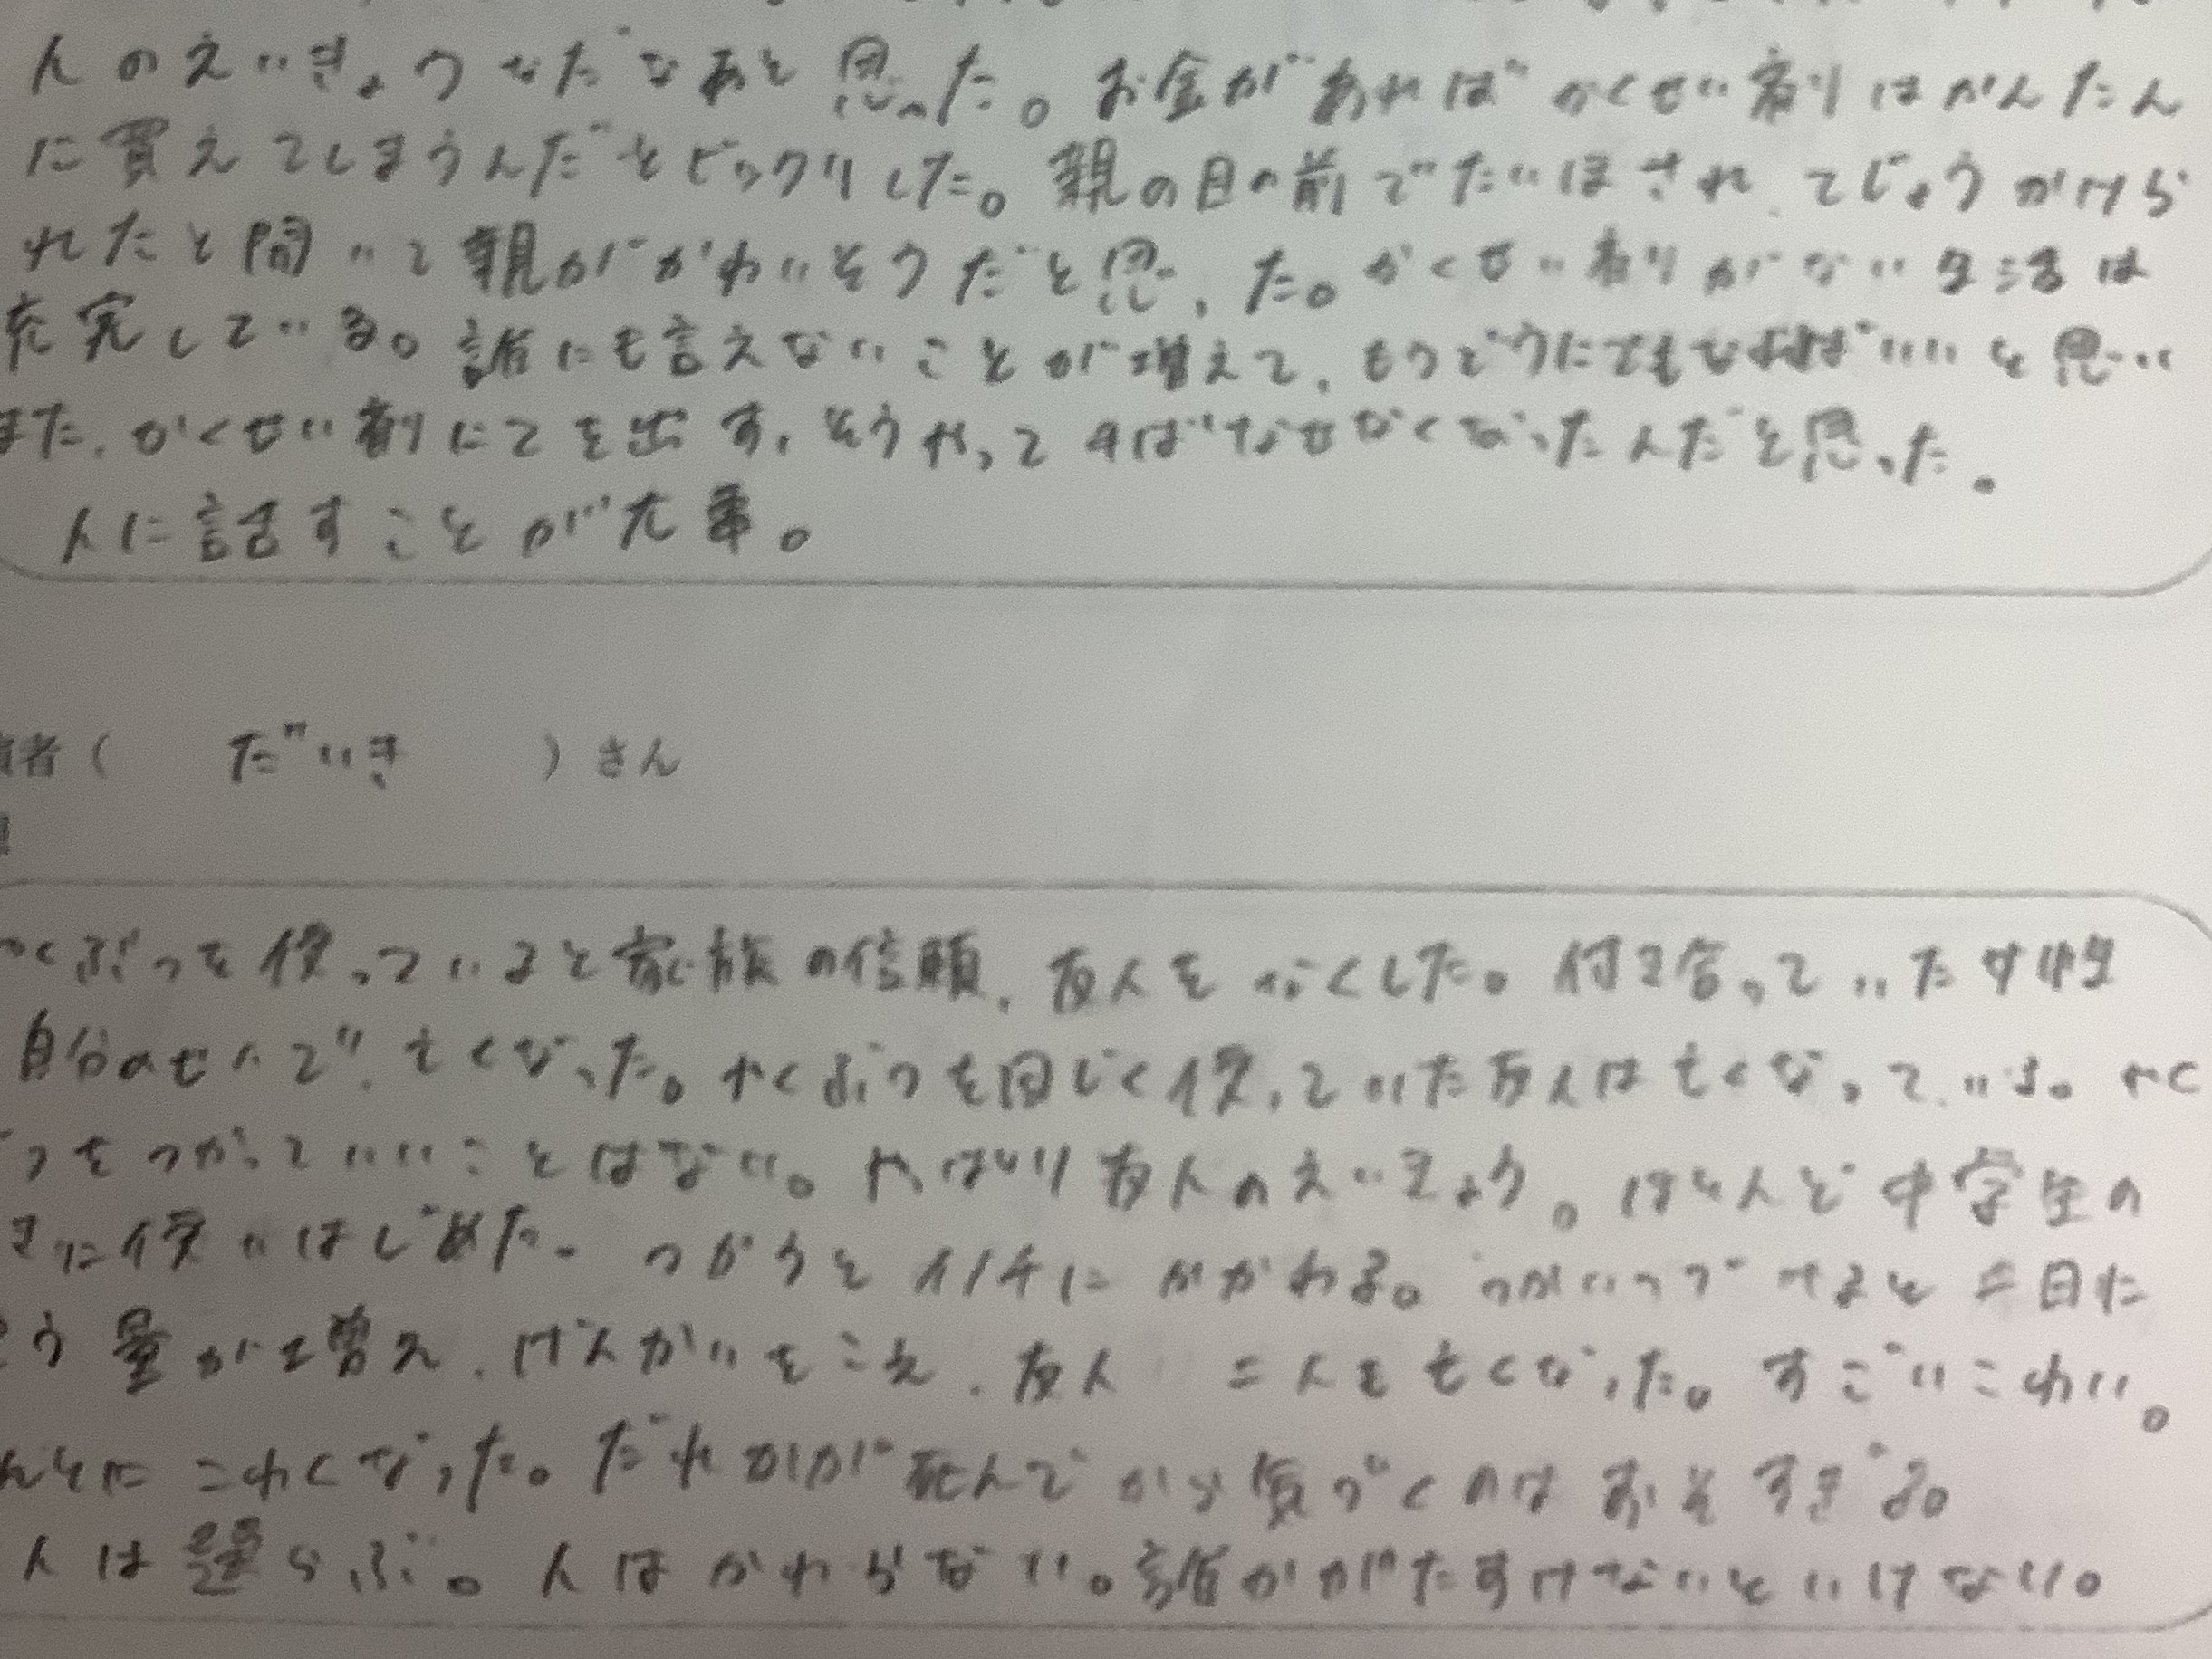 人のえいきょうなだなあと思った。お金があればかくせい剤はかんたん
に買えてしまうんだとビックリした。親の目の前でたいほされ、てじょうかけら
れたと聞いて親がかわいそうだと思った。かくせい剤がない生活は
充実している。誰にも言えないことが増えて、もうどうにでもなればいいと思い
また、かくせい剤にてを出す。そうやって なくなったんだと思った。
人に話すことが大事。
者( だいき )さん
くぶつを使っていると家族の信頼、友人をなくした。付き合っていた女性
自分のせいで、亡くなった。やくぶつを同じく使っていた友人は亡くなっている。やく
つをつかっていいことはない。やっぱり友人のえいきょう。ほとんど中学生の
きに使いはじめた。つかうとイノチにかかわる。つかいつづけると
う量が増え、けんかいをこえ、友人 二人も亡くなった。すごいこわい。
んとにこわくなった。だれかが死んでから気づくのはおそすぎる。
人は選らぶ。人はかわらない。誰かがたすけないといけない。